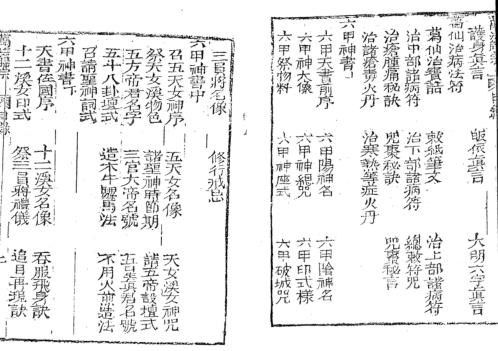 護身眞言
皈依眞言
大明六字眞言
葛仙治病法符
葛仙治寳誥
敕紙筆文
治上部諸病符
治中部諸病符
治下部諸病符
總敕符咒
治瘡腫痛秘訣
咒棗秘訣
咒棗秘言
治諸瘡棗火丹
治寒熱等症火丹
六甲神書上
六甲天書前序
六甲陽神名
六甲陰神名
六甲神大像
六甲神總咒
六甲印式樣
六甲祭物料
六甲神座式
六甲破城咒
三員將名像
修行戒忌
六甲神書中
召五天女神序
五天女名像
天女溪女神咒
祭天女溪物色
諸聖神時節期
請五帝設壇式
五方帝君名字
三官大帝名號
五星眞君名號
五十八卦壇式
造木牛騾馬法
不用火煎造法
召請聖神詞式
六甲神書下
天書佐國序
十二溪女名像
吞服飛身訣
十二溪女印式
祭三員將禮儀
追目再現訣